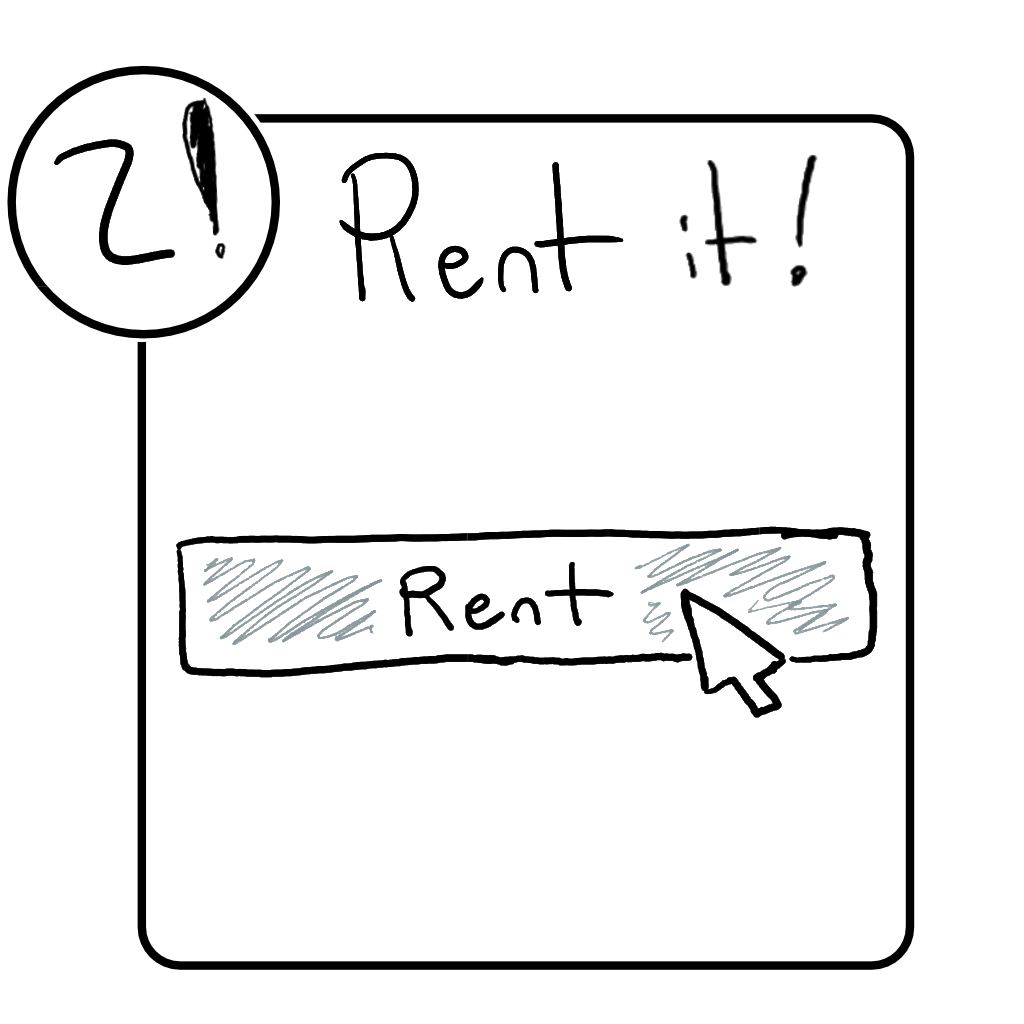 2!
Rent it!
Rent